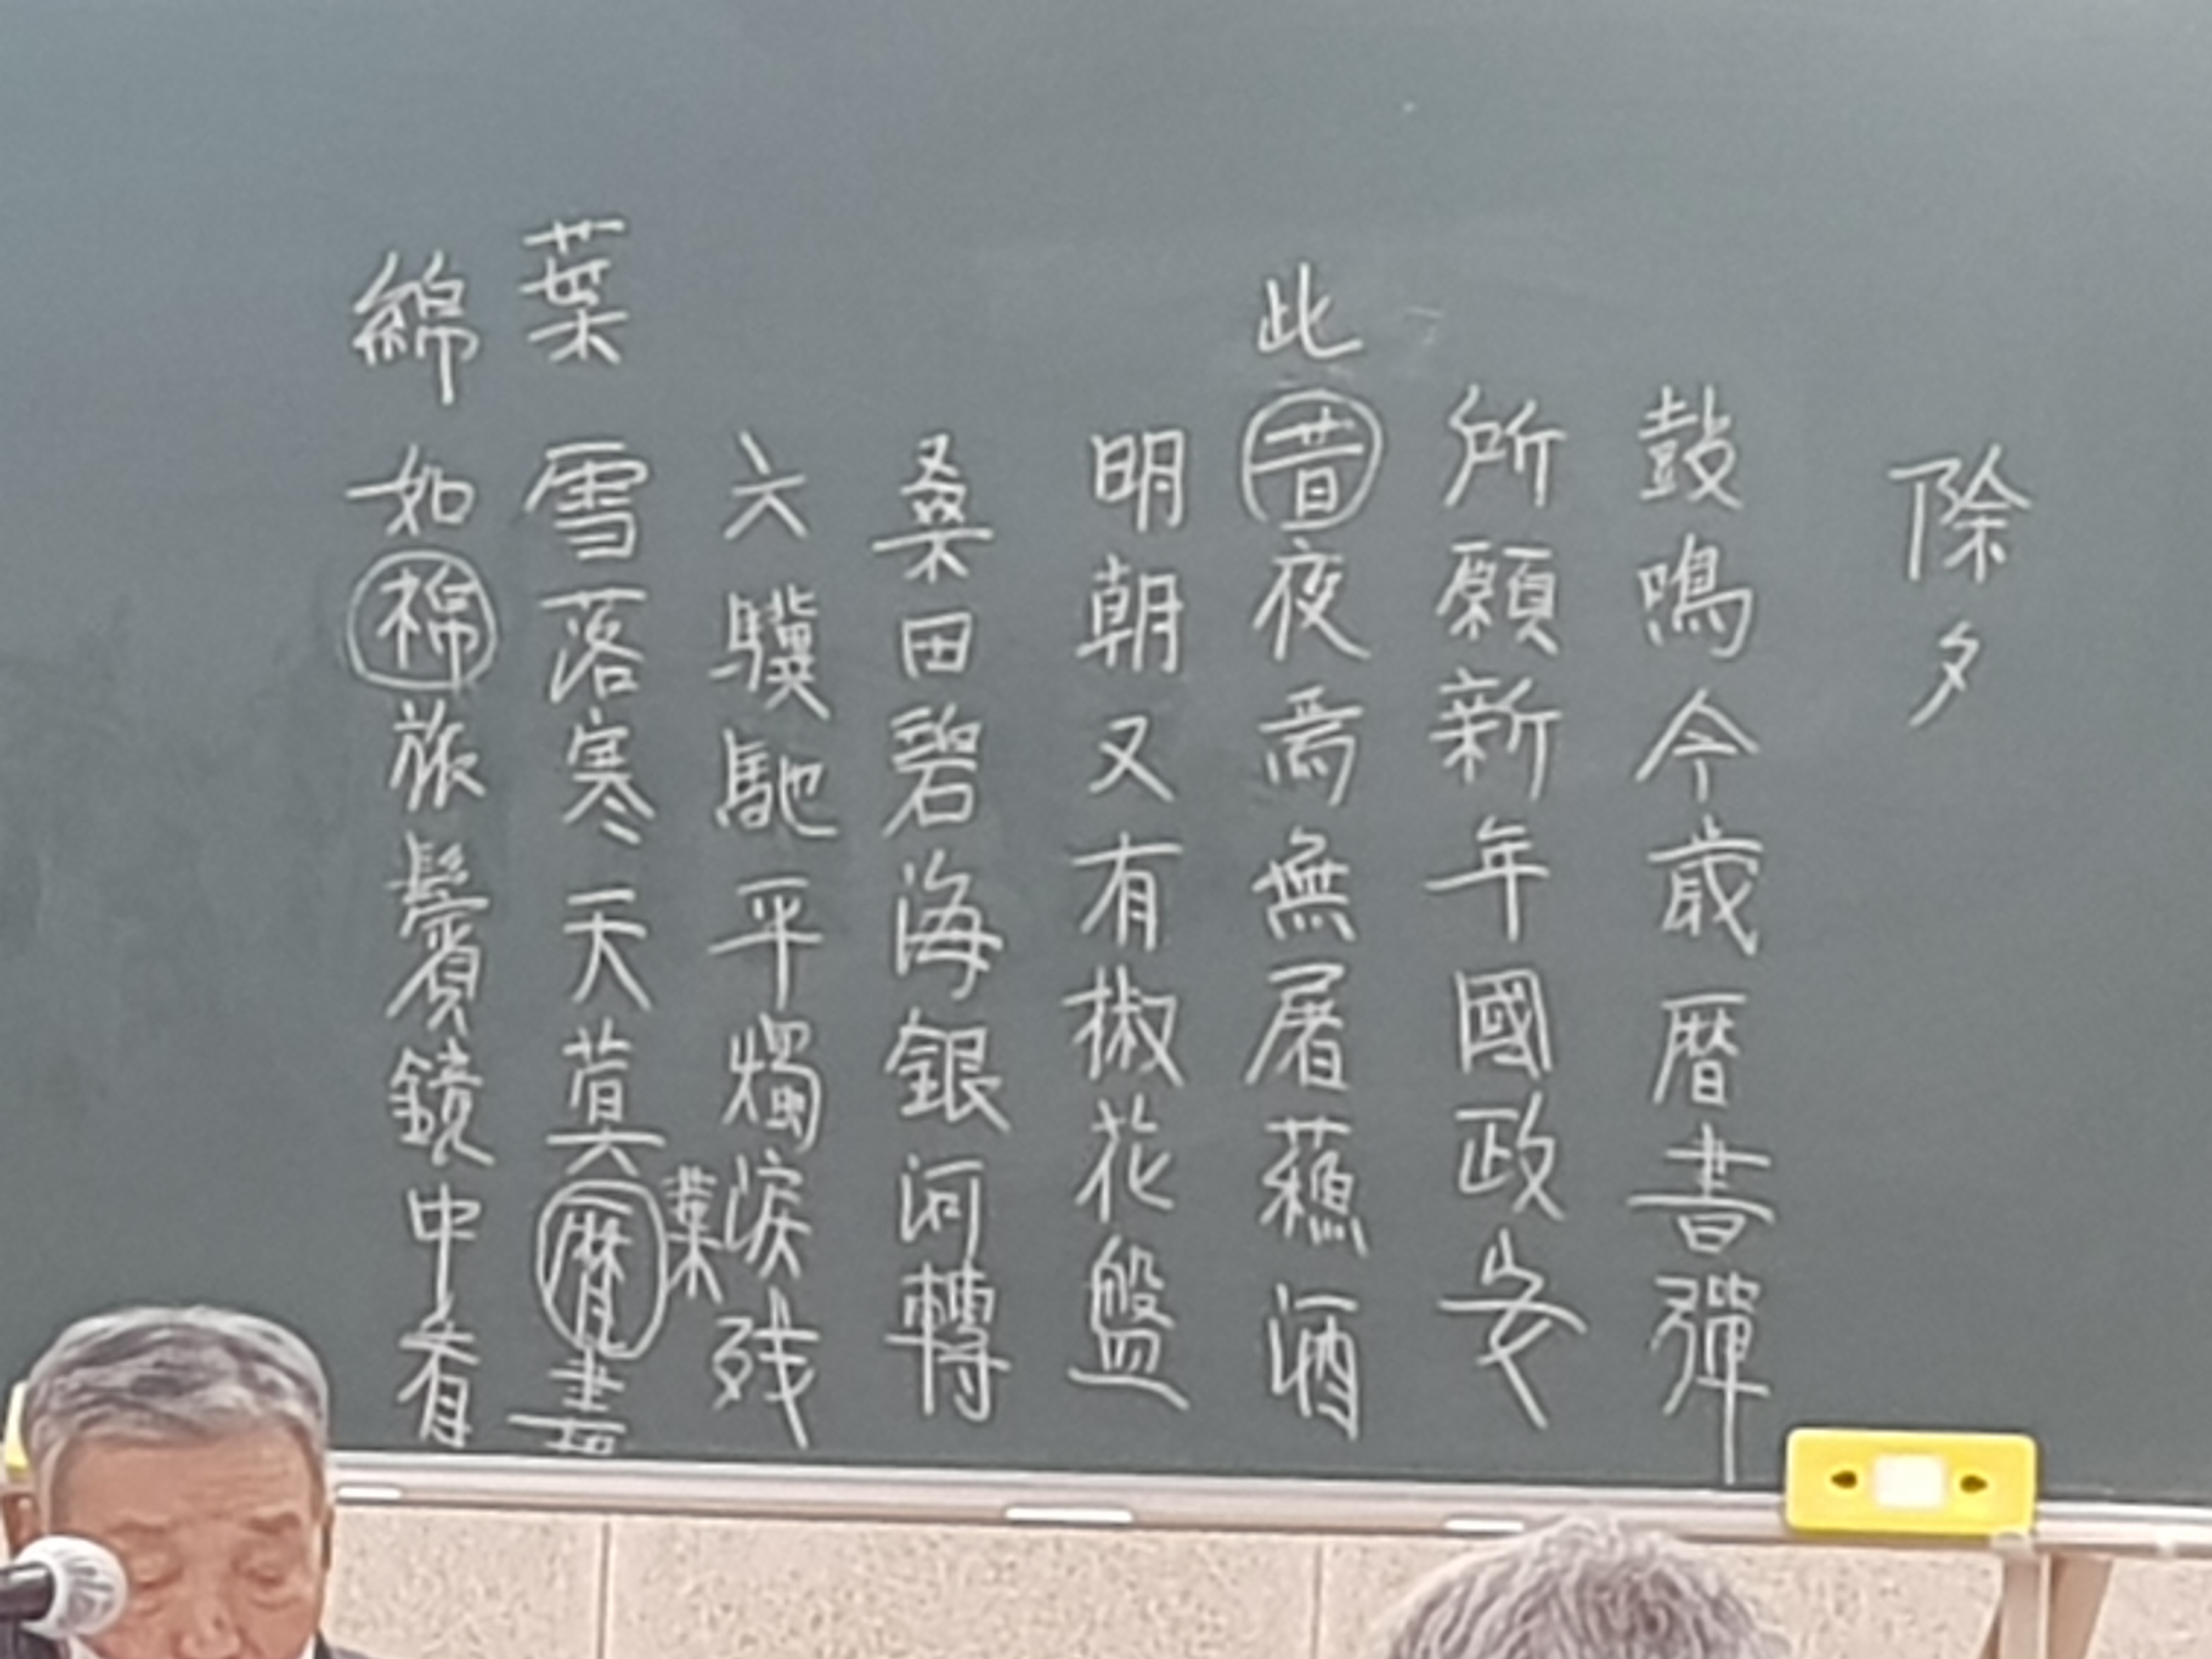 除夕
鼓鳴今歲曆書彈
所願新年國政安
此
昔夜焉無屠蘇酒
明朝又有椒花盤
桑田碧海銀河轉
六驥馳平燭淚残
葉
葉
雪落寒天蓂曆書
綿
如棉旅鬢鏡中看